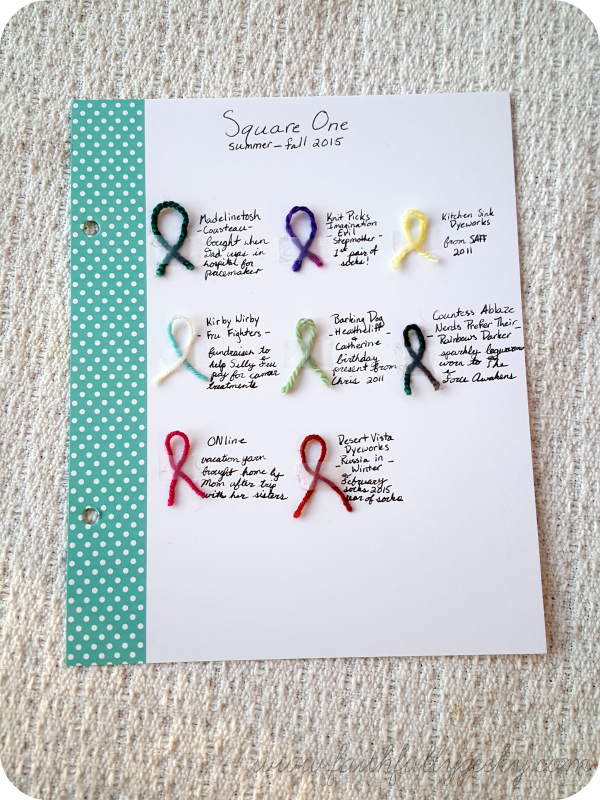 Square One
summer-fall 2015
Madelinetosh
-Cousteau-
bought when
Dad was in
hospital for
pacemaker
Knit Picks
Imagination
- Evil
Stepmother -
1st pair of
socks!
Kitchen Sink
Dyeworks
from SAFF
2011
Kirby Wirby
- Fru Fighters -
fundraiser to
help Selly Fru
pay for cancer
treatments
Barking Dog
- Heathcliff
&
Catherine -
birthday
present from
Chris 2011
Countess Ablaze
Nerds Prefer Their
- Rainbows Darker -
sparkly
worn to The
Force Awakens
ONline
vacation yarn
brought home by
Mom after trip
with her sisters
Desert Vista
Dyeworks
- Russia in -
Winter
February
socks 2015
year of socks
www.faithfullygeeky.com